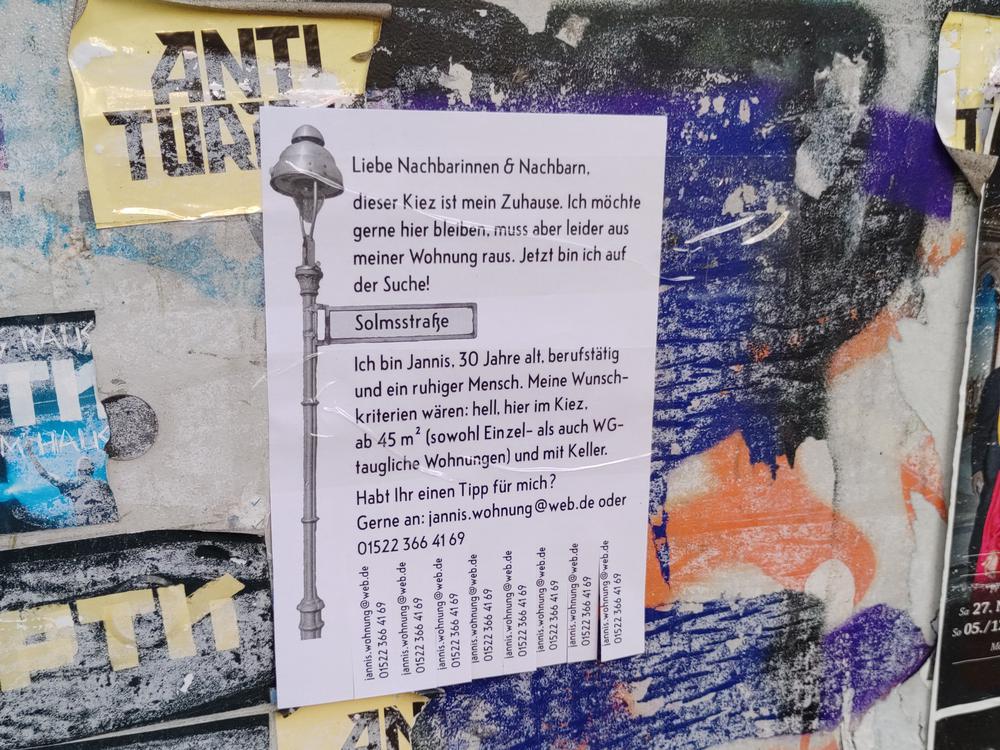 ANTI
Liebe Nachbarinnen & Nachbarn,
dieser Kiez ist mein Zuhause. Ich möchte
gerne hier bleiben, muss aber leider aus
meiner Wohnung raus. Jetzt bin ich auf
der Suche!
Solmsstraße
Ich bin Jannis, 30 Jahre alt, berufstätig
und ein ruhiger Mensch. Meine Wunsch-
kriterien wären: hell, hier im Kiez,
ab 45 m² (sowohl Einzel- als auch WG-
taugliche Wohnungen) und mit Keller.
Habt Ihr einen Tipp für mich?
Gerne an: jannis.wohnung@web.de oder
01522 366 41 69
jannis.wohnung@web.de
01522 366 41 69
jannis.wohnung@web.de
01522 366 41 69
jannis.wohnung@web.de
01522 366 41 69
jannis.wohnung@web.de
01522 366 41 69
jannis.wohnung@web.de
01522 366 41 69
jannis.wohnung@web.de
01522 366 41 69
jannis.wohnung@web.de
01522 366 41 69
jannis.wohnung@web.de
01522 366 41 69
Sa 27.
So 05./1